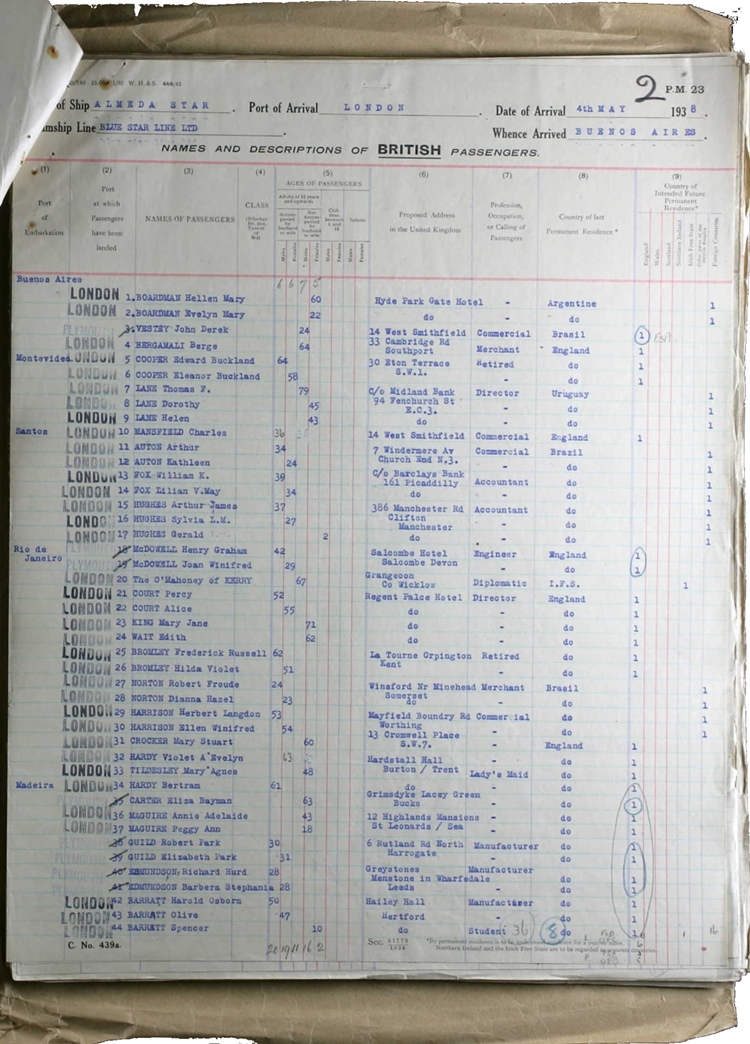 W. H. & S.
2 P.M. 23
of Ship ALMEDA STAR Port of Arrival LONDON Date of Arrival 4th MAY 1938
mship Line BLUE STAR LINE LTD Whence Arrived BUENOS AIRES
NAMES AND DESCRIPTIONS OF BRITISH PASSENGERS.
(1) (2) (3) (4) (5) (6) (7) (8) (9)
Port of Embarkation Port at which Passengers have been landed NAMES OF PASSENGERS CLASS AGES OF PASSENGERS Proposed Address in the United Kingdom Profession, Occupation, or Calling of Passengers Country of last Permanent Residence* Country of Intended Future Permanent Residence*
England Wales Scotland Northern Ireland Irish Free State Foreign Countries
Buenos Aires
LONDON 1. BOARDMAN Hellen Mary 60 Hyde Park Gate Hotel - Argentine 1
LONDON 2. BOARDMAN Evelyn Mary 22 do - do 1
PLYMOUTH 3. VESTEY John Derek 24 14 West Smithfield Commercial Brasil 1
LONDON 4 BERGAMALI Berge 64 33 Cambridge Rd Southport Merchant England 1
Montevideo LONDON 5 COOPER Edward Buckland 64 30 Eton Terrace S.W.1. Retired do 1
LONDON 6 COOPER Eleanor Buckland 58 - do 1
LONDON 7 LANE Thomas F. 79 C/o Midland Bank Director Uruguay 1
LONDON 8 LANE Dorothy 45 94 Fenchurch St E.C.3. - do 1
LONDON 9 LANE Helen 43 do - do 1
Santos LONDON 10 MANSFIELD Charles 36 14 West Smithfield Commercial England 1
LONDON 11 AUTON Arthur 34 7 Windermere Av Commercial Brazil 1
LONDON 12 AUTON Kathleen 24 Church End N.3. - do 1
LONDON 13 FOX William K. 39 C/o Barclays Bank 161 Picadilly Accountant do 1
LONDON 14 FOX Lilian V.May 34 do - do 1
LONDON 15 HUGHES Arthur James 37 386 Manchester Rd Accountant do 1
LONDON 16 HUGHES Sylvia L.M. 27 Clifton Manchester - do 1
LONDON 17 HUGHES Gerald 2 do - do 1
Rio de Janeiro 18 McDOWELL Henry Graham 42 Salcombe Hotel Engineer England 1
PLYMOUTH 19 McDOWELL Joan Winifred 29 Salcombe Devon - do 1
LONDON 20 The O'Mahoney of KERRY 67 Grangecon Co Wicklow Diplomatic I.F.S. 1
LONDON 21 COURT Percy 52 Regent Palce Hotel Director England 1
LONDON 22 COURT Alice 55 do - do 1
LONDON 23 KING Mary Jane 71 do - do 1
LONDON 24 WAIT Edith 62 do - do 1
LONDON 25 BROMLEY Frederick Russell 62 La Tourne Orpington Retired do 1
LONDON 26 BROMLEY Hilda Violet 51 Kent - do 1
LONDON 27 NORTON Robert Froude 24 Winsford Nr Minehead Merchant Brasil 1
LONDON 28 NORTON Dianna Hazel 23 Somerset do - do 1
LONDON 29 HARRISON Herbert Langdon 53 Mayfield Boundry Rd Commercial do 1
LONDON 30 HARRISON Ellen Winifred 54 Worthing - do 1
LONDON 31 CROCKER Mary Stuart 60 13 Cromwell Place S.W.7. - England 1
LONDON 32 HARDY Violet A Evelyn 63 Hardstall Hall - do 1
LONDON 33 TILDESLEY Mary Agnes 48 Burton / Trent Lady's Maid do 1
Madeira LONDON 34 HARDY Bertram 61 do - do 1
35 CARTER Eliza Bayman 63 Grimsdyke Lacey Green Bucks - do 1
LONDON 36 MAGUIRE Annie Adelaide 43 12 Highlands Mansions - do 1
LONDON 37 MAGUIRE Peggy Ann 18 St Leonards / Sea - do 1
PLYMOUTH 38 GUILD Robert Park 30 6 Rutland Rd North Manufacturer do 1
PLYMOUTH 39 GUILD Elizabeth Park 31 Harrogate - do 1
PLYMOUTH 40 EDMUNDSON Richard Hurd 28 Greystones Manufacturer do 1
PLYMOUTH 41 EDMUNDSON Barbera Stephania 28 Menstone in Wharfedale Leeds - do 1
LONDON 42 BARRATT Harold Osborn 50 Hailey Hall Manufacturer do 1
LONDON 43 BARRATT Olive 47 Hertford - do 1
LONDON 44 BARRETT Spencer 10 do Student 36 8 do 1
C. No. 439a.